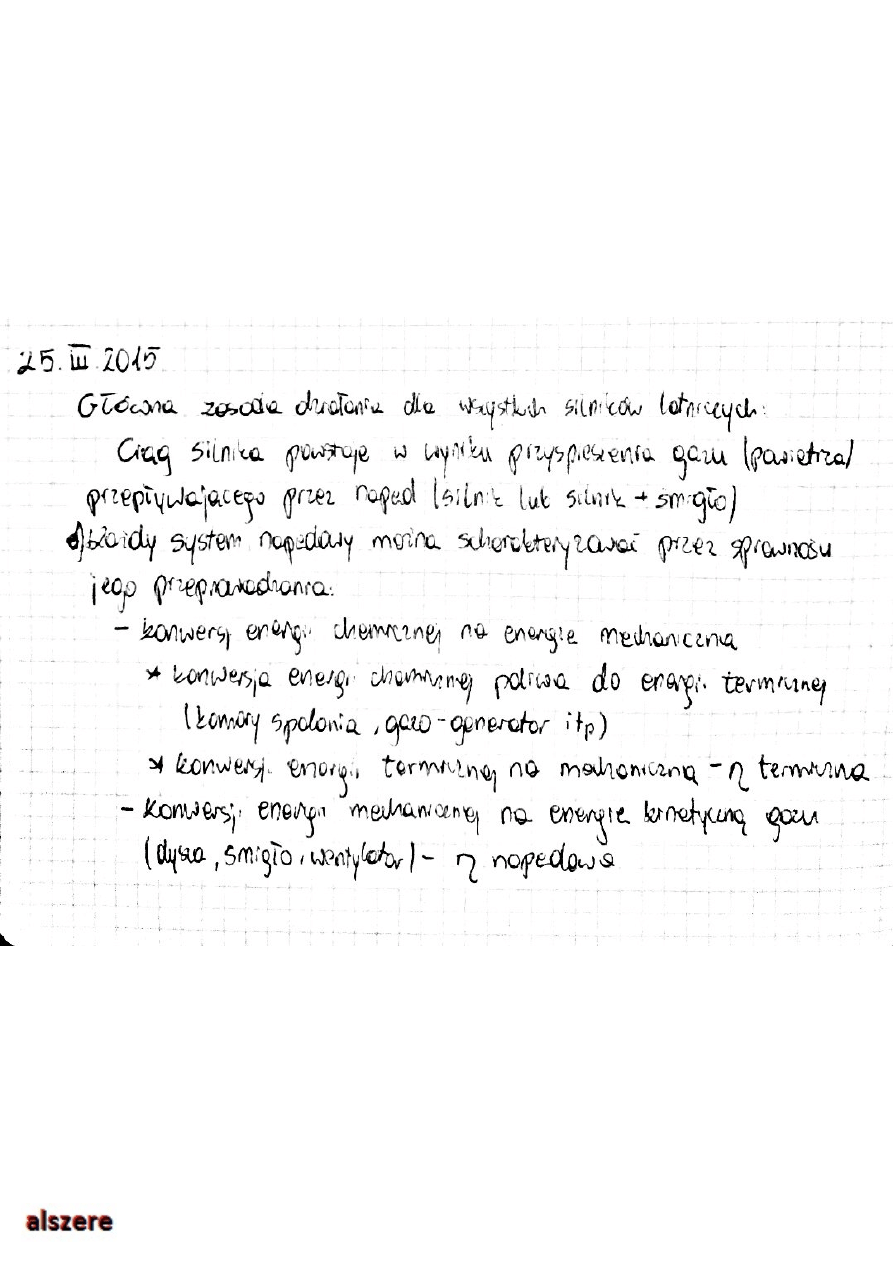 25.III.2015
Główna zasada działania dla wszystkich silników lotniczych:
Ciąg silnika powstaje w wyniku przyspieszenia gazu (powietrza)
przepływającego przez napęd (silnik lub silnik + śmigło)
Każdy system napędowy można scharakteryzować przez sprawność
jego przeprowadzania:
- konwersj energii chemicznej na energie mechaniczna
* konwersja energi chemicznej paliwa do energi termicznej
(komory spalania, gazo-generator itp)
* konwersji energii termicznej na mechaniczną - η termiczna
- konwersji energii mechanicznej na energie kinetyczną gazu
(dysza, śmigło, wentylator) - η napedowa
alszere